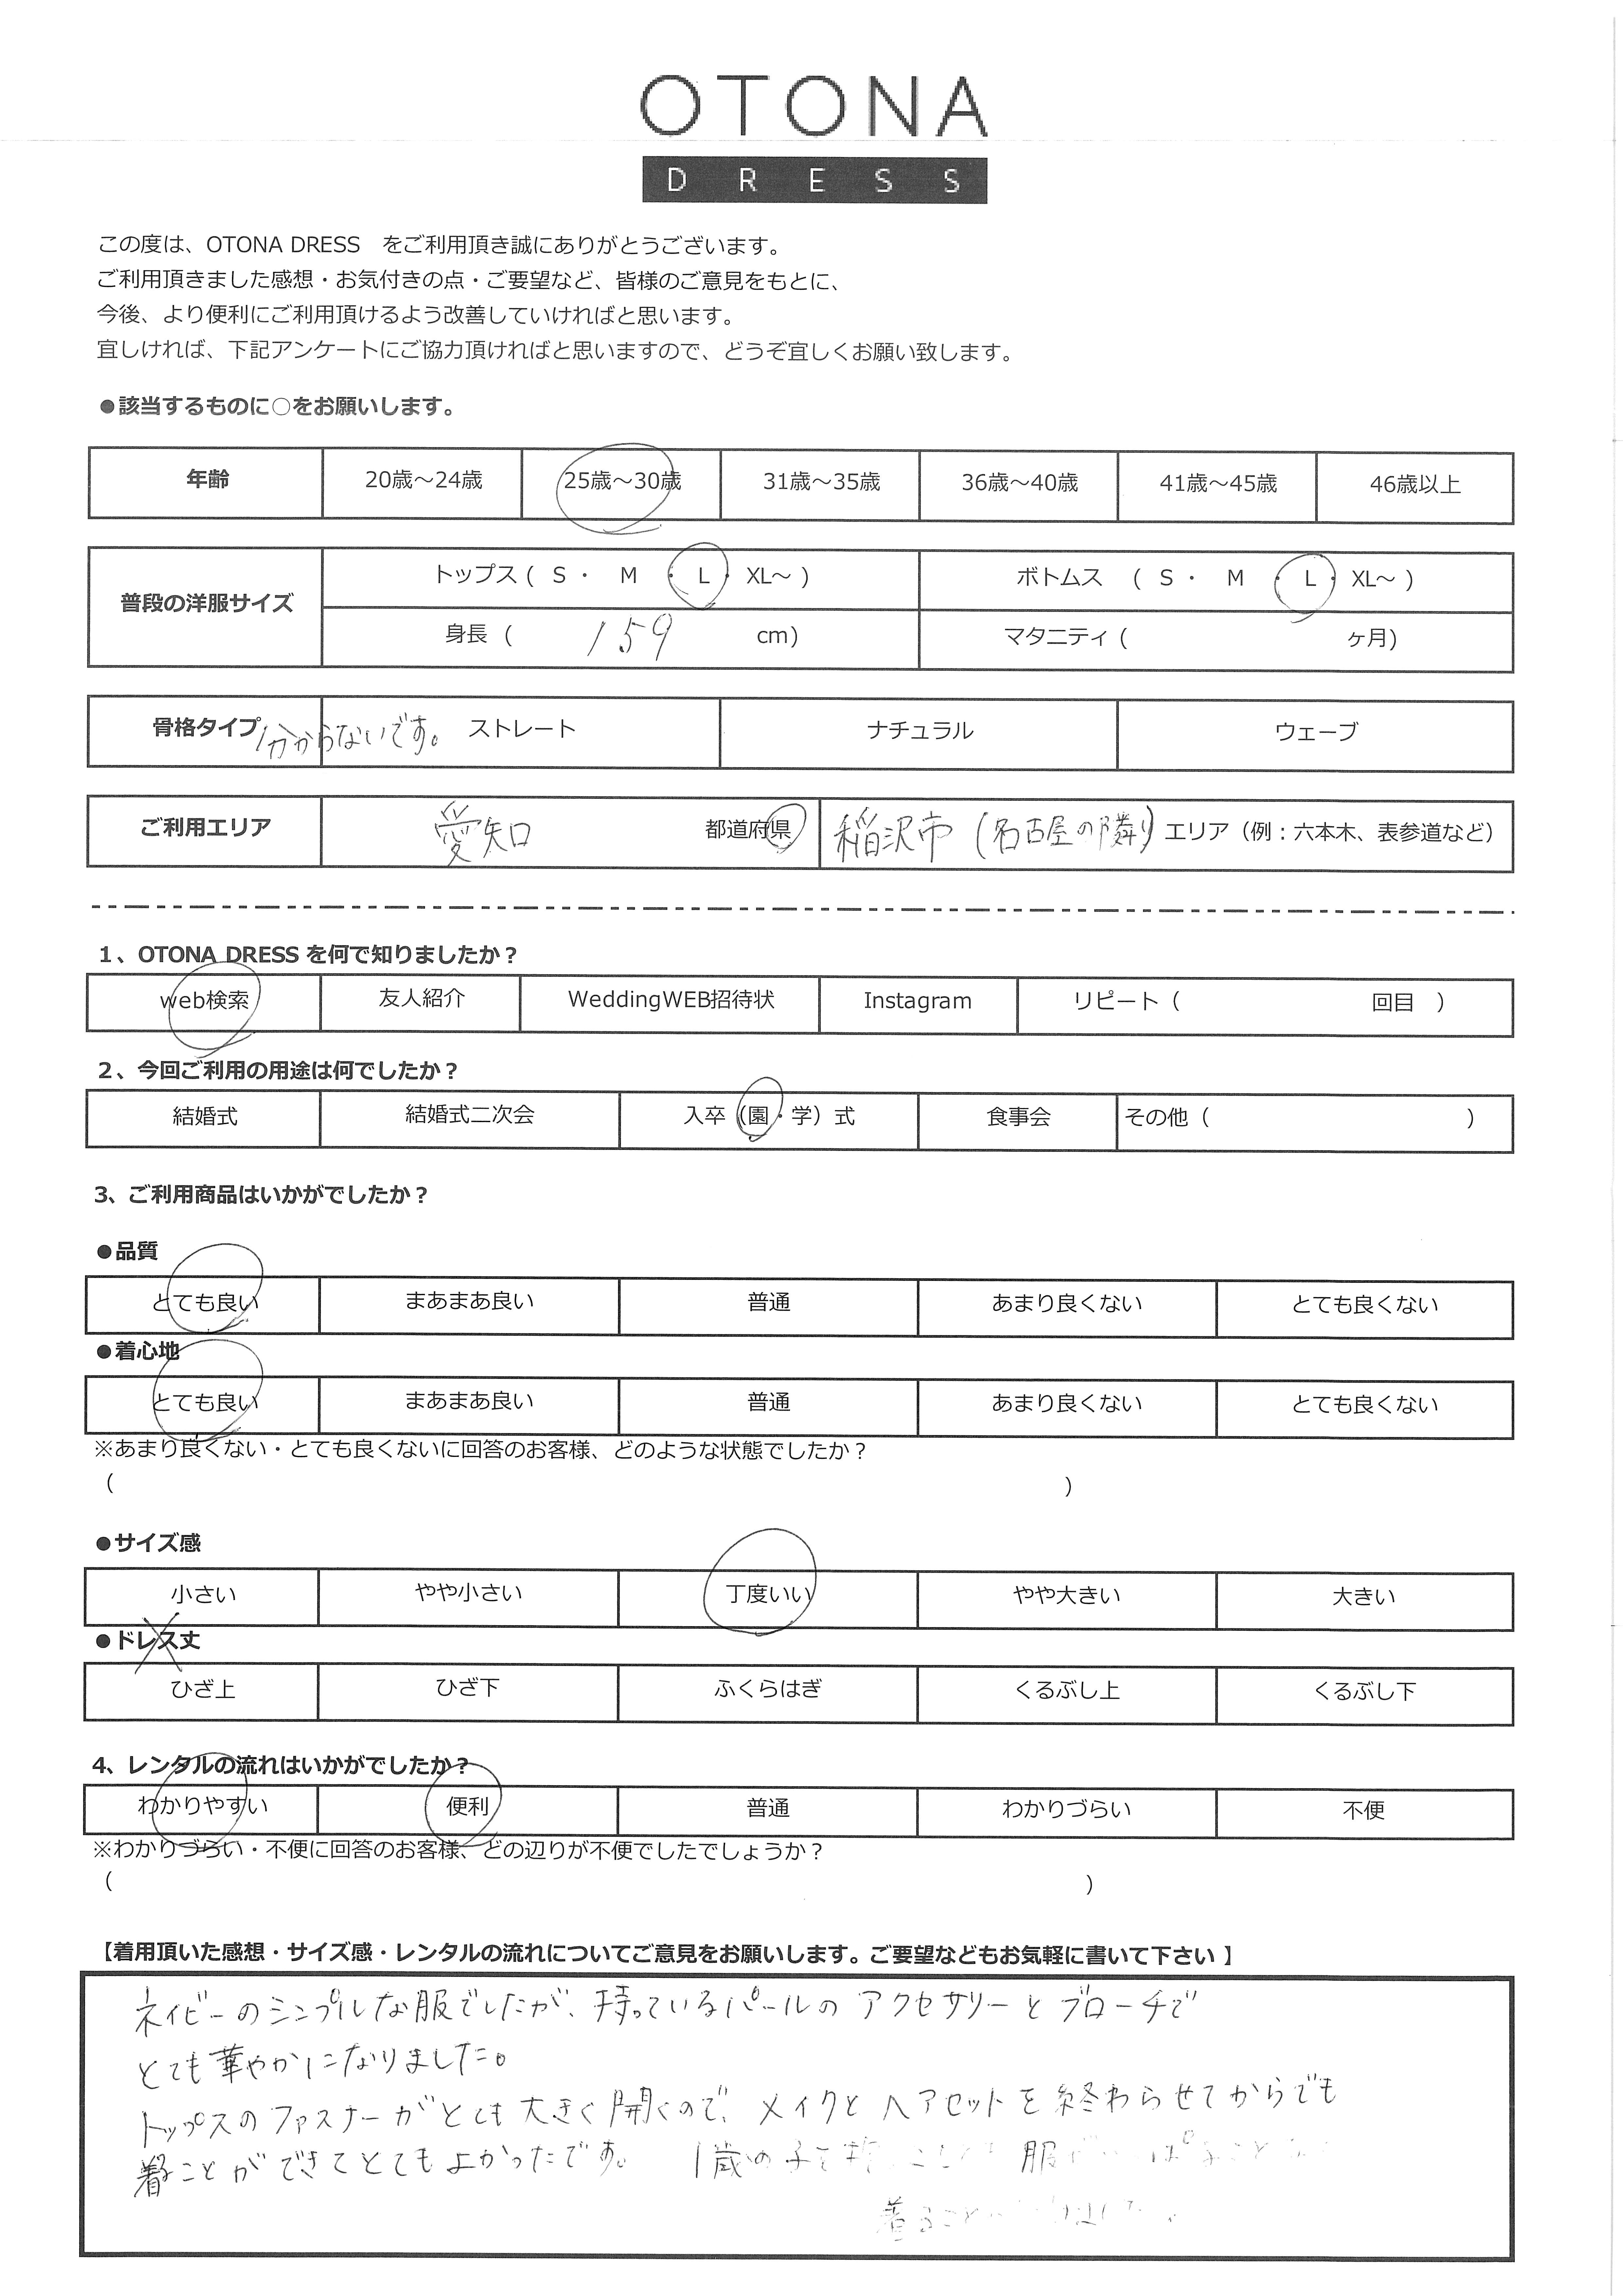 OTONA
DRESS
この度は、OTONA DRESS　をご利用頂き誠にありがとうございます。
ご利用頂きました感想・お気付きの点・ご要望など、皆様のご意見をもとに、
今後、より便利にご利用頂けるよう改善していければと思います。
宜しければ、下記アンケートにご協力頂ければと思いますので、どうぞ宜しくお願い致します。
●該当するものに○をお願いします。
年齢 20歳～24歳 25歳～30歳 31歳～35歳 36歳～40歳 41歳～45歳 46歳以上
普段の洋服サイズ トップス ( S ・ M ・ L ・ XL～ ) ボトムス ( S ・ M ・ L ・ XL～ )
身長 ( 159 cm) マタニティ ( ヶ月)
骨格タイプ 分からないです。 ストレート ナチュラル ウェーブ
ご利用エリア 愛知 都道府県 稲沢市 (名古屋の隣り) エリア（例：六本木、表参道など）
1、OTONA DRESS を何で知りましたか？
web検索 友人紹介 WeddingWEB招待状 Instagram リピート（ 回目 ）
2、今回ご利用の用途は何でしたか？
結婚式 結婚式二次会 入卒（園・学）式 食事会 その他（ ）
3、ご利用商品はいかがでしたか？
●品質
とても良い まあまあ良い 普通 あまり良くない とても良くない
●着心地
とても良い まあまあ良い 普通 あまり良くない とても良くない
※あまり良くない・とても良くないに回答のお客様、どのような状態でしたか？
( )
●サイズ感
小さい やや小さい 丁度いい やや大きい 大きい
●ドレス丈
ひざ上 ひざ下 ふくらはぎ くるぶし上 くるぶし下
4、レンタルの流れはいかがでしたか？
わかりやすい 便利 普通 わかりづらい 不便
※わかりづらい・不便に回答のお客様、どの辺りが不便でしたでしょうか？
( )
【着用頂いた感想・サイズ感・レンタルの流れについてご意見をお願いします。ご要望などもお気軽に書いて下さい 】
ネイビーのシンプルな服でしたが、持っているパールのアクセサリーとブローチで
とても華やかになりました。
トップスのファスナーがとても大きく開くので、メイクとヘアセットを終わらせてからでも
着ることができてとてもよかったです。 1歳の子を 服
着ること